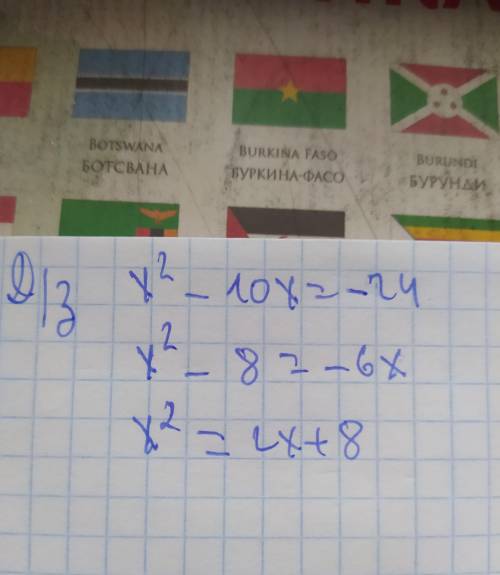 BOTSWANA
БОТСВАНА
BURKINA FASO
БУРКИНА-ФАСО
BURUNDI
БУРУНДИ
Д/з
x² - 10x = -24
x² - 8 = -6x
x² = 2x + 8